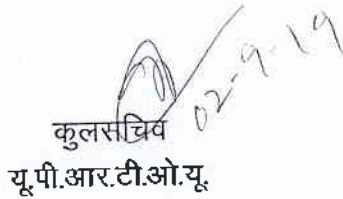 02-9-19
कुलसचिव
यू.पी.आर.टी.ओ.यू.